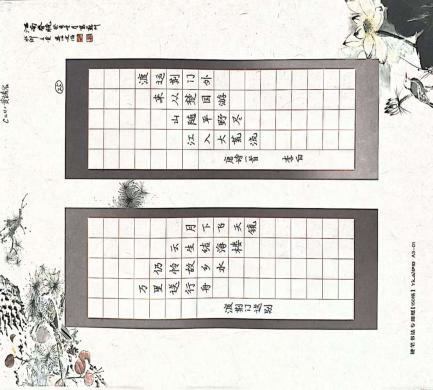 江南春晓
渡远荆门外
来从楚国游
山随平野尽
江入大荒流
李白
月下飞天镜
云生结海楼
仍怜故乡水
万里送行舟
渡荆门送别
A3-01